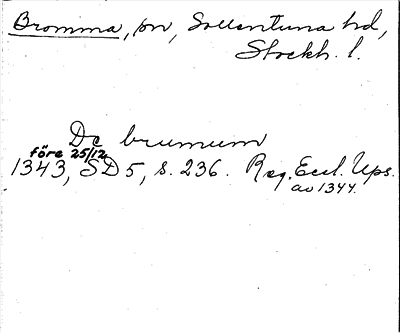 Bromma, sn, Sollentuna hd,
Stockh. l.
De brumum
före 25/12
1343, SD 5, s. 236. Reg. Eccl. Ups.
av 1344.